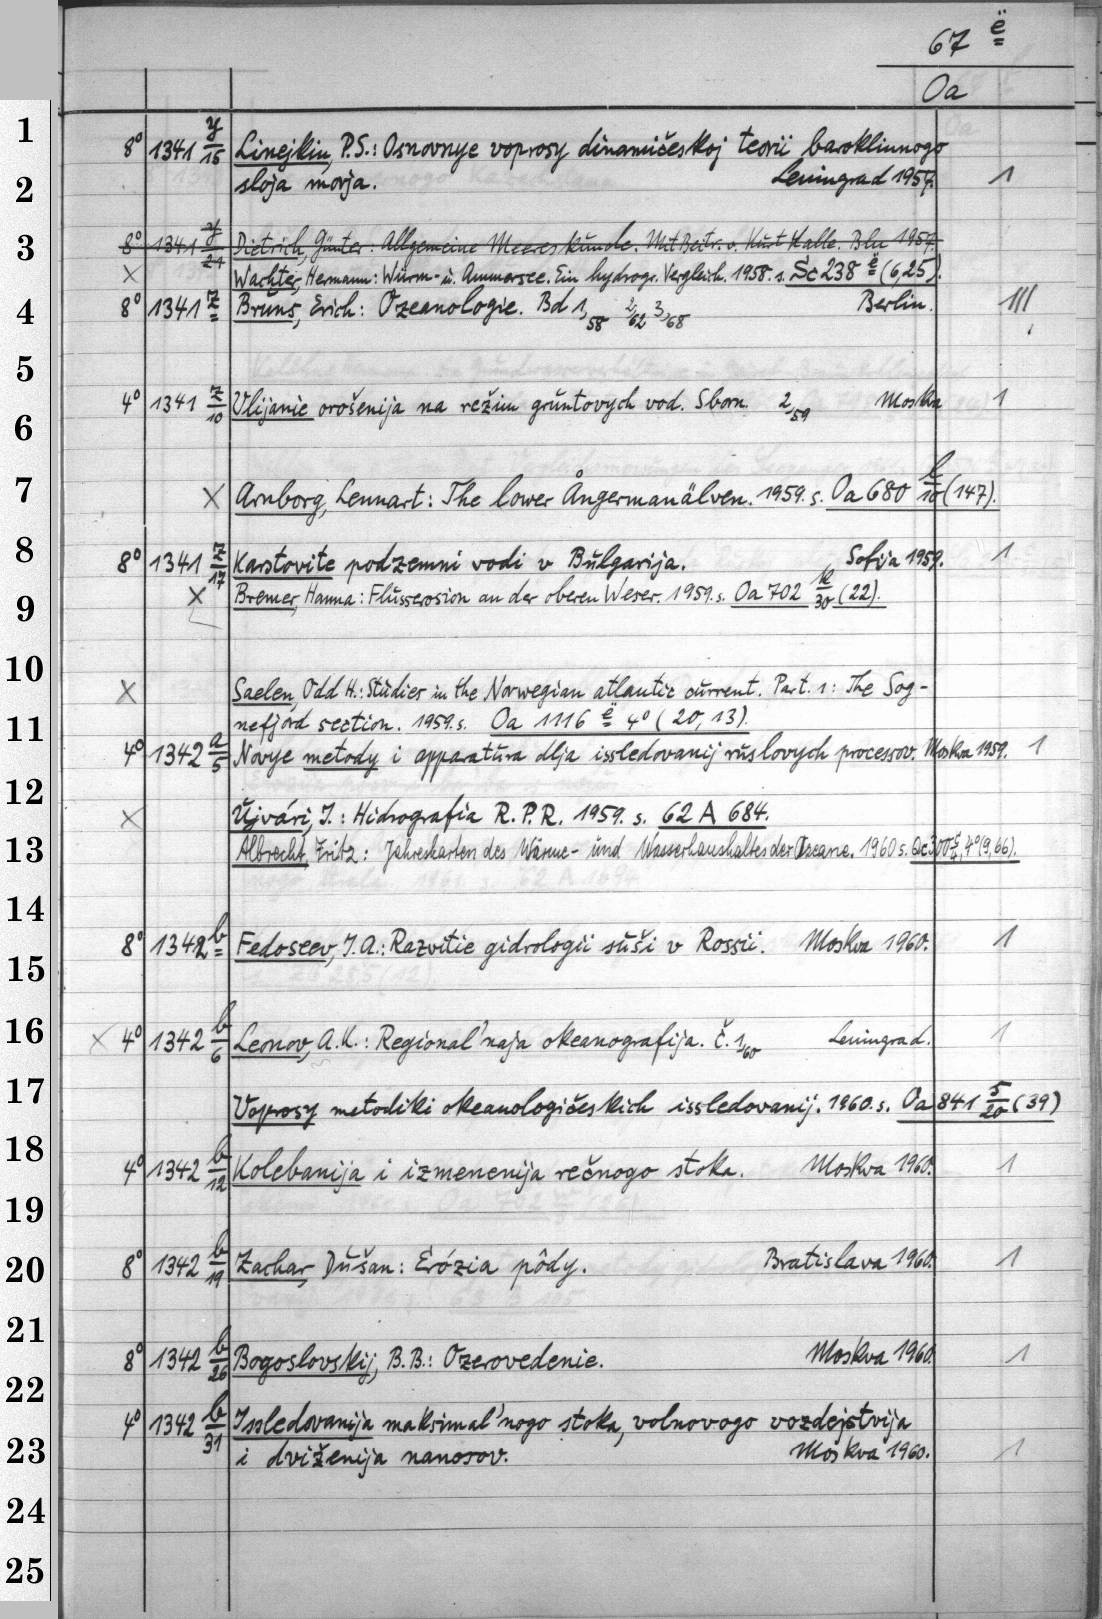 67 ë
Oa
1
8° 1341 y/15 Linejkin, P.S.: Osnovnye voprosy dinamičeskoj teorii baroklinnogo
2
sloja morja. Leningrad 1957. 1
3
8° 1341 y/21 Dietrich, Günter: Allgemeine Meereskunde. Mit Beitr. v. Kurt Kalle. Bln 1957.
× Wachter, Hermann: Würm- u. Ammersee. Ein hydrogr. Vergleich. 1958. s. Sc 238 ë (6,25).
4
8° 1341 z Bruns, Erich: Ozeanologie. Bd 1,58 2,62 3,68 Berlin. III
5
4° 1341 z/10 Vlijanie orošenija na režim gruntovych vod. Sborn. 2,59 Moskva 1
6
7
× Arnborg, Lennart: The lower Ångermanälven. 1959. s. Oa 680 l/10 (147).
8
8° 1341 z/17 Karstovite podzemni vodi v Bulgarija. Sofija 1959. 1
9
× Bremer, Hanna: Flusserosion an der oberen Weser. 1959. s. Oa 702 k/30 (22).
10
× Saelen, Odd H.: Studies in the Norwegian atlantic current. Part. 1: The Sog-
11
nefjord section. 1959. s. Oa 1116 ë 4° (20,13).
4° 1342 a/5 Novye metody i apparatura dlja issledovanij ruslovych processov. Moskva 1959. 1
12
× Ujvári, J.: Hidrografia R.P.R. 1959. s. 62 A 684.
13
Albrecht, Fritz: Jahreskarten des Wärme- und Wasserhaushaltes der Ozeane. 1960 s.
14
8° 1342 b Fedoseev, I.A.: Razvitie gidrologii suši v Rossii. Moskva 1960. 1
15
16
× 4° 1342 b/6 Leonov, A.K.: Regional'naja okeanografija. č. 1,60 Leningrad. 1
17
Voprosy metodiki okeanologičeskich issledovanij. 1960. s. Oa 841 5/20 (39)
18
4° 1342 b/12 Kolebanija i izmenenija rečnogo stoka. Moskva 1960. 1
19
20
8° 1342 b/19 Zachar, Dušan: Erózia pôdy. Bratislava 1960. 1
21
8° 1342 b/26 Bogoslovskij, B.B.: Ozerovedenie. Moskva 1960. 1
22
4° 1342 b/31 Issledovanija maksimal'nogo stoka, volnovogo vozdejstvija
23
i dviženija nanosov. Moskva 1960. 1
24
25